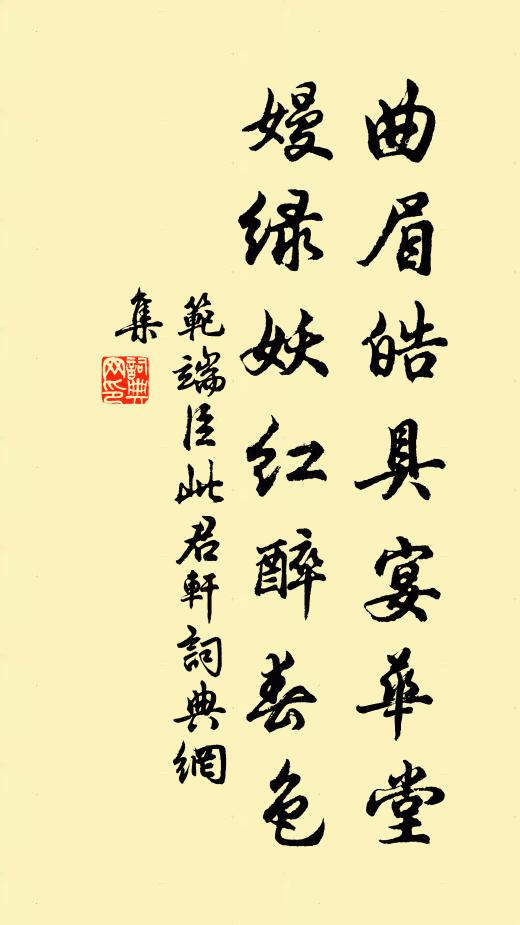 曲眉皓具宴華堂
嫚绿妖红醉春色
範端臣此君軒詞典網
集
詞典
网印